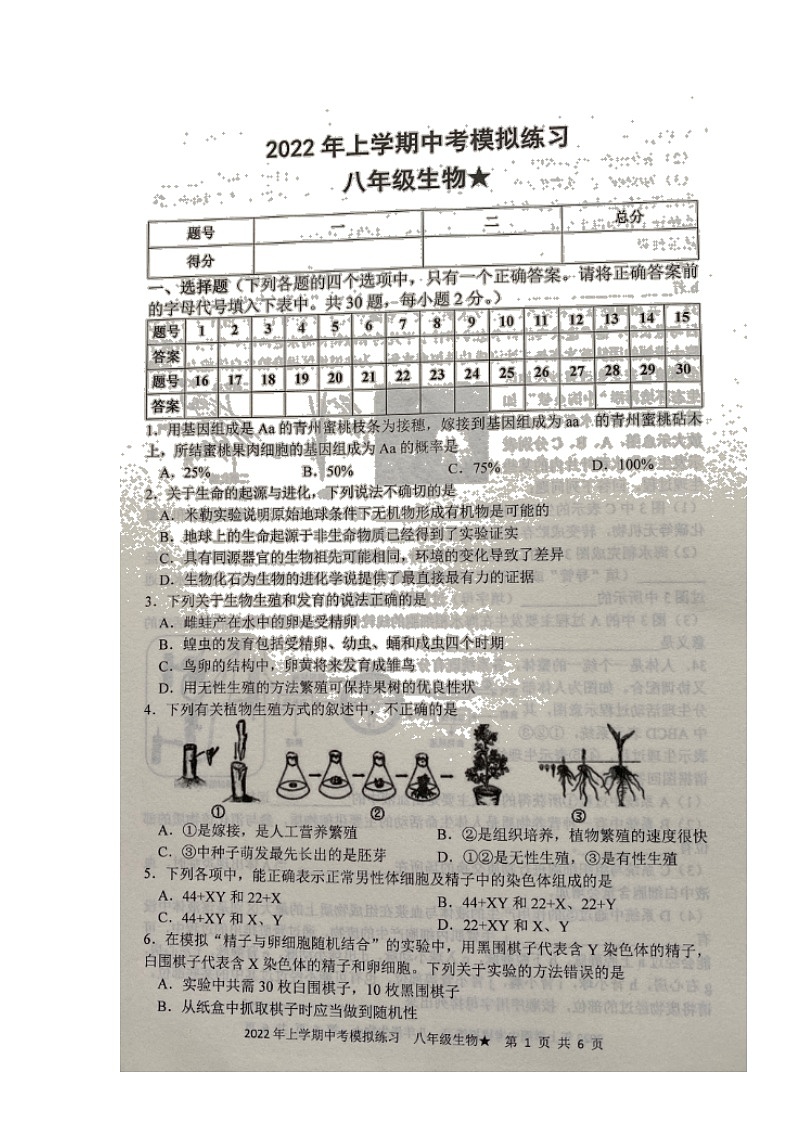 2022年上学期中考模拟练习
八年级生物★
题号 一 二 总分
得分
一、选择题（下列各题的四个选项中，只有一个正确答案。请将正确答案前
的字母代号填入下表中。共30题，每小题2分。）
题号 1 2 3 4 5 6 7 8 9 10 11 12 13 14 15
答案
题号 16 17 18 19 20 21 22 23 24 25 26 27 28 29 30
答案
1．用基因组成是Aa的青州蜜桃枝条为接穗，嫁接到基因组成为aa 的青州蜜桃砧木
上，所结蜜桃果肉细胞的基因组成为Aa的概率是
A．25% B．50% C．75% D．100%
2．关于生命的起源与进化，下列说法不确切的是
A．米勒实验说明原始地球条件下无机物形成有机物是可能的
B．地球上的生命起源于非生命物质已经得到了实验证实
C．具有同源器官的生物祖先可能相同，环境的变化导致了差异
D．生物化石为生物的进化学说提供了最直接最有力的证据
3．下列关于生物生殖和发育的说法正确的是
A．雌蛙产在水中的卵是受精卵
B．蝗虫的发育包括受精卵、幼虫、蛹和成虫四个时期
C．鸟卵的结构中，卵黄将来发育成雏鸟
D．用无性生殖的方法繁殖可保持果树的优良性状
4．下列有关植物生殖方式的叙述中，不正确的是
① ② ③
A．①是嫁接，是人工营养繁殖 B．②是组织培养，植物繁殖的速度很快
C．③中种子萌发最先长出的是胚芽 D．①②是无性生殖，③是有性生殖
5．下列各项中，能正确表示正常男性体细胞及精子中的染色体组成的是
A．44+XY和22+X B．44+XY和22+X、22+Y
C．44+XY和X、Y D．22+XY和X、Y
6．在模拟“精子与卵细胞随机结合”的实验中，用黑围棋子代表含Y染色体的精子，
白围棋子代表含X染色体的精子和卵细胞。下列关于实验的方法错误的是
A．实验中共需30枚白围棋子，10枚黑围棋子
B．从纸盒中抓取棋子时应当做到随机性
2022年上学期中考模拟练习 八年级生物★ 第 1 页 共 6 页